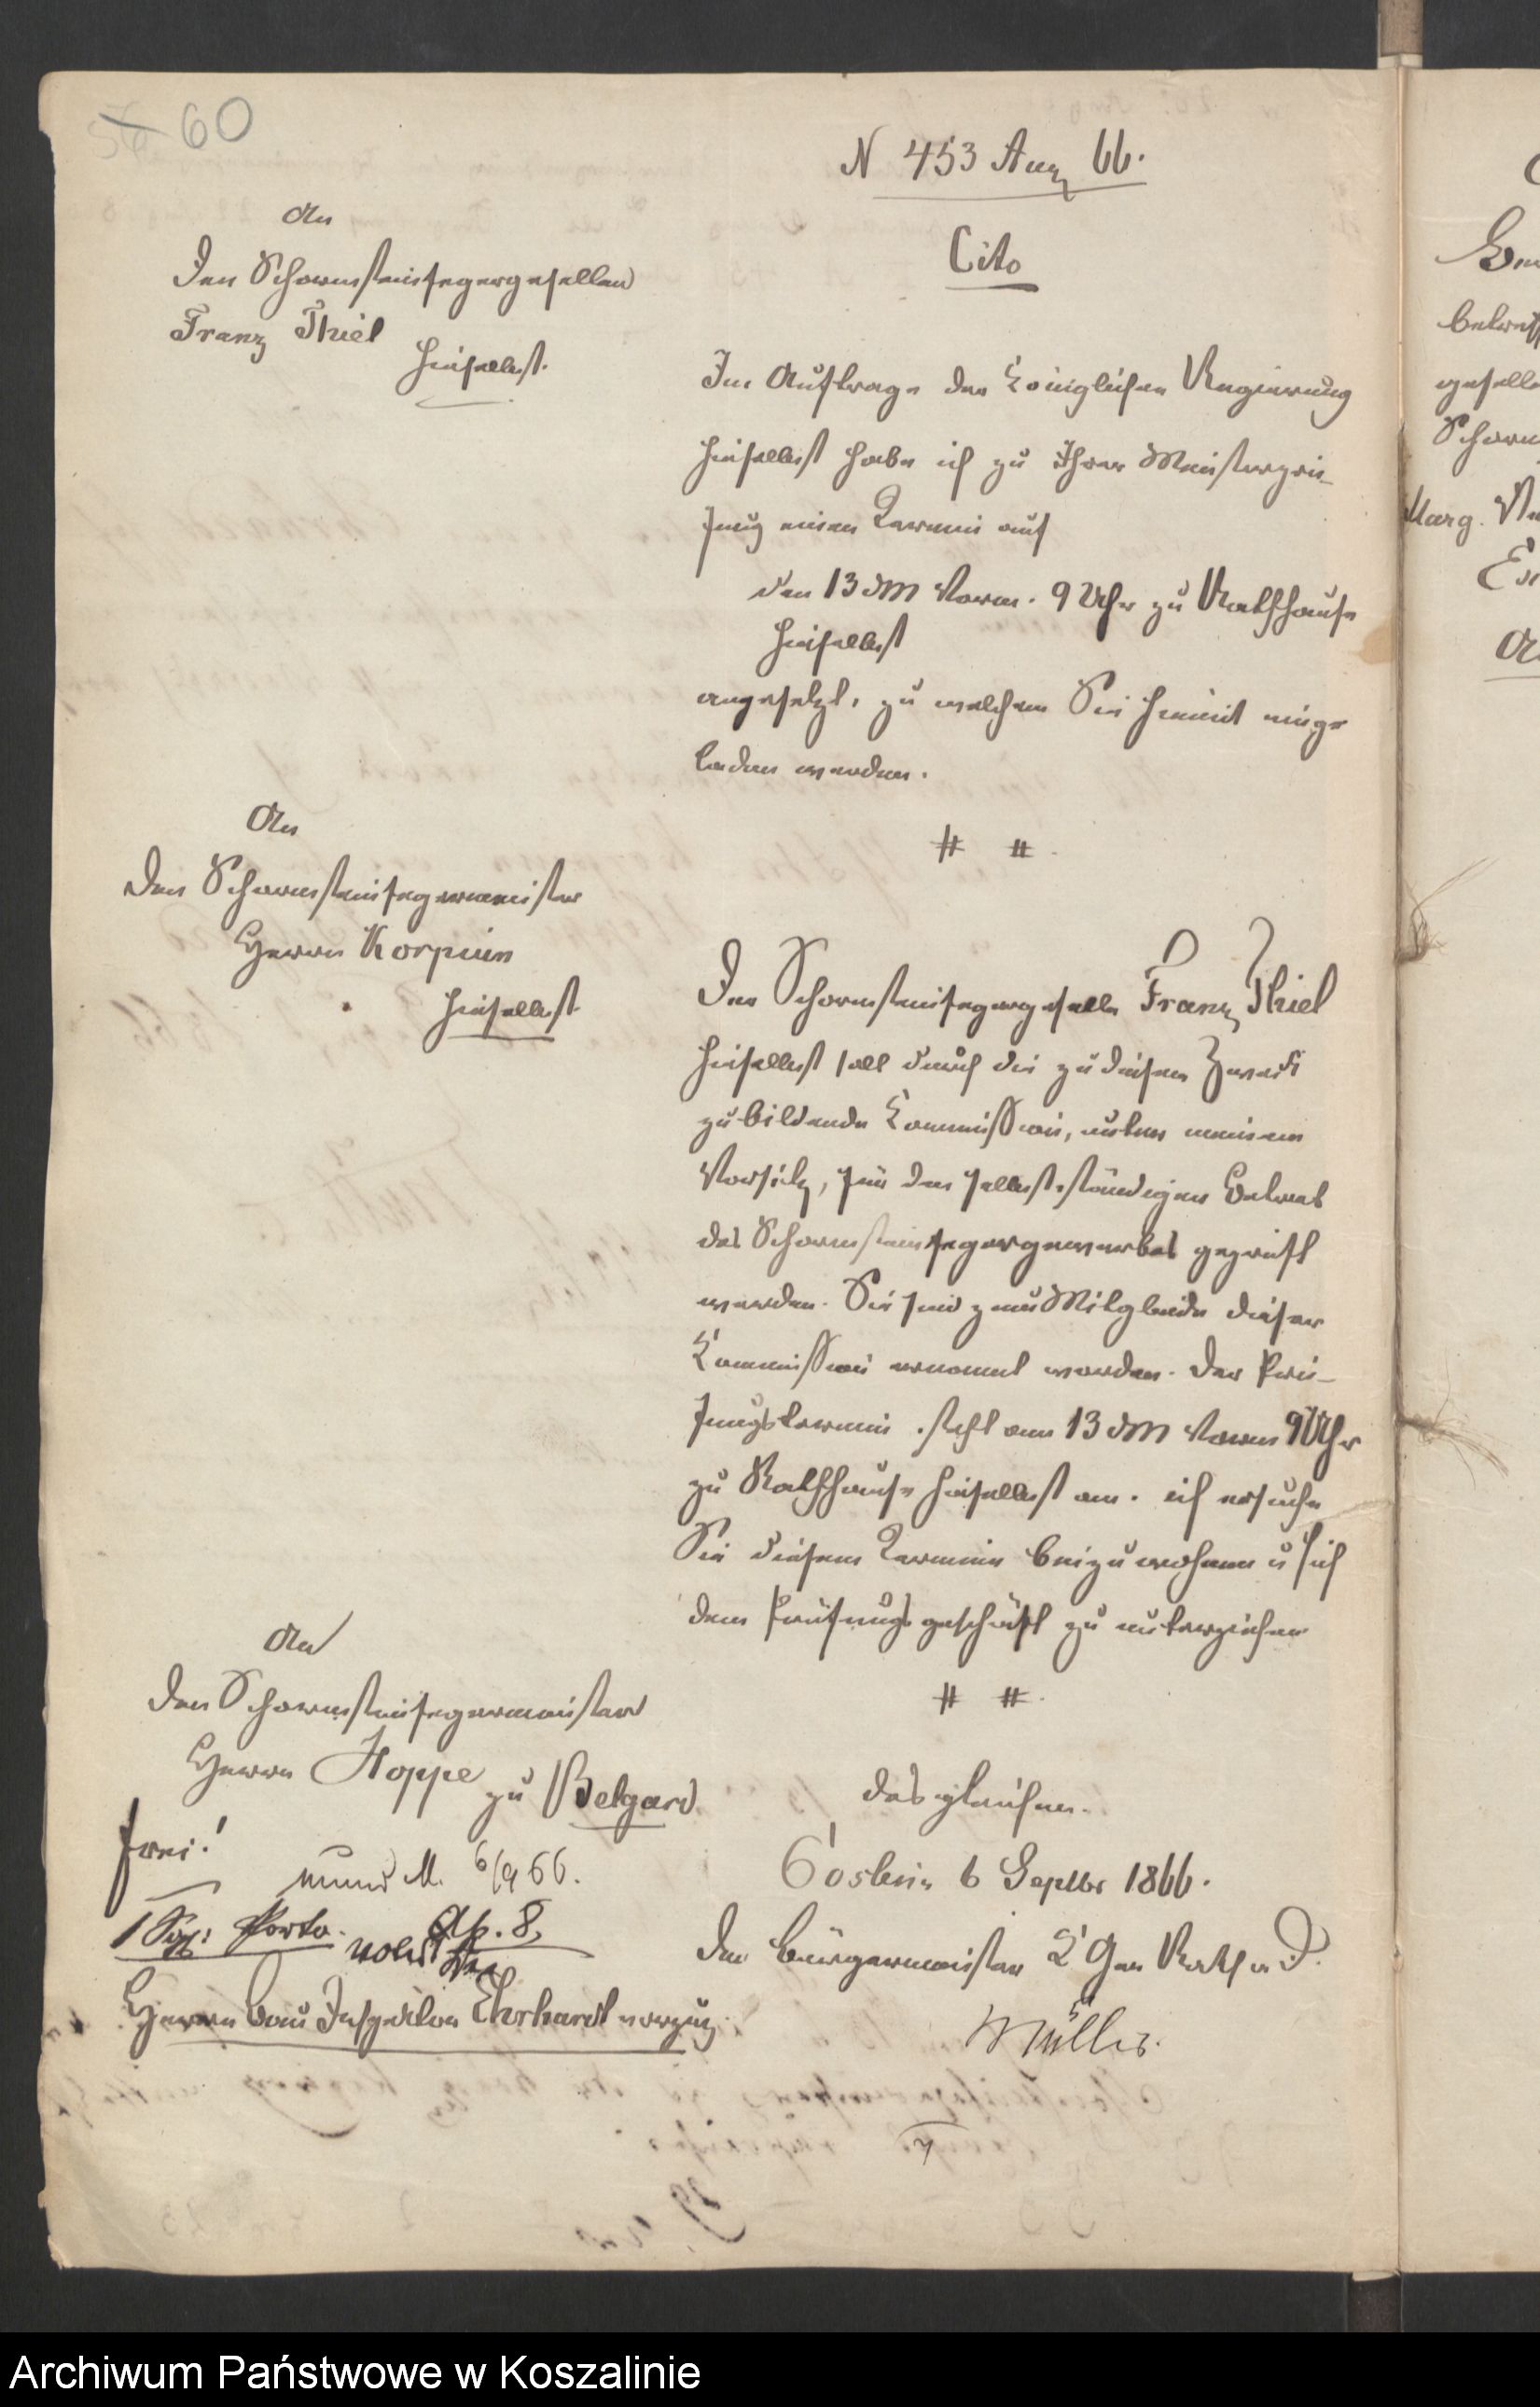 60
N 453 Aug 66.
Cito
An
den Schornsteinfegergesellen
Franz Thiel
hieselbst.
Im Auftrage der Königlichen Regierung
hieselbst habe ich zu Ihrer Meisterprü-
fung einen Termin auf
den 13 d M Vorm. 9 Uhr zu Rathhause
hieselbst
angesetzt, zu welchem Sie hiermit einge
laden werden.
# #.
An
den Schornsteinfegermeister
Herrn Korpium
hieselbst
Der Schornsteinfegergeselle Franz Thiel
hieselbst soll durch die zu diesem Zweck
zu bildende Kommission, unter meinem
Vorsitz, für den selbstständigen Betrieb
des Schornsteinfegergewerbes geprüft
werden. Sie sind zum Mitgliede dieser
Kommission ernannt worden. Der Prü-
fungstermin steht am 13 d M Vorm 9 Uhr
zu Rathhause hieselbst an. ich ersuche
Sie diesem Termine beizuwohnen u sich
dem Prüfungsgeschäft zu unterziehen
# #.
An
den Schornsteinfegermeister
Herrn Hoppe
zu Belgard
desgleichen.
frei!
mund M. 6/9 66.
1 Sgr: Porto.
Coslin 6 Septbr 1866.
Der Bürgermeister K Geh Rath a. D.
Herrn Bau Inspektor Ehrhardt
Müller.
Marg.
Archiwum Państwowe w Koszalinie